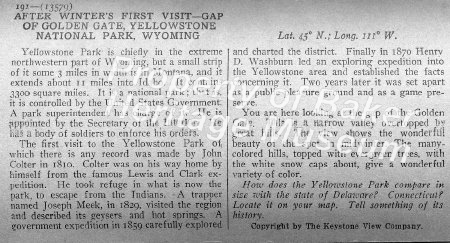 191—(13579)
AFTER WINTER'S FIRST VISIT—GAP
OF GOLDEN GATE, YELLOWSTONE
NATIONAL PARK, WYOMING
Yellowstone Park is chiefly in the extreme
northwestern part of Wyoming, but a small strip
of it some 3 miles in width is in Montana, and it
extends about 11 miles into Idaho. It contains
3300 square miles. It is a national park; that is
it is controlled by the United States Government.
A park superintendent for the whole is
appointed by the Secretary of the Interior. He
has a body of soldiers to enforce his orders.
The first visit to the Yellowstone Park of
which there is any record was made by John
Colter in 1810. Colter was on his way home by
himself from the famous Lewis and Clark ex-
pedition. He took refuge in what is now the
park, to escape from the Indians. A trapper
named Joseph Meek, in 1829, visited the region
and described its geysers and hot springs. A
government expedition in 1859 carefully explored
Lat. 45° N.; Long. 111° W.
and charted the district. Finally in 1870 Henry
D. Washburn led an exploring expedition into
the Yellowstone area and established the facts
concerning it. Two years later it was set apart
as a public pleasure ground and as a game pre-
serve.
You are here looking at the gap of the Golden
Gate. Just a narrow valley overtopped by
shows the wonderful
beauty of the many-
colored hills, topped with the trees, with
the white snow caps about, give a wonderful
variety of color.
How does the Yellowstone Park compare in
size with the state of Delaware? Connecticut?
Locate it on your map. Tell something of its
history.
Copyright by The Keystone View Company.
Property of Baker
Heritage Museum